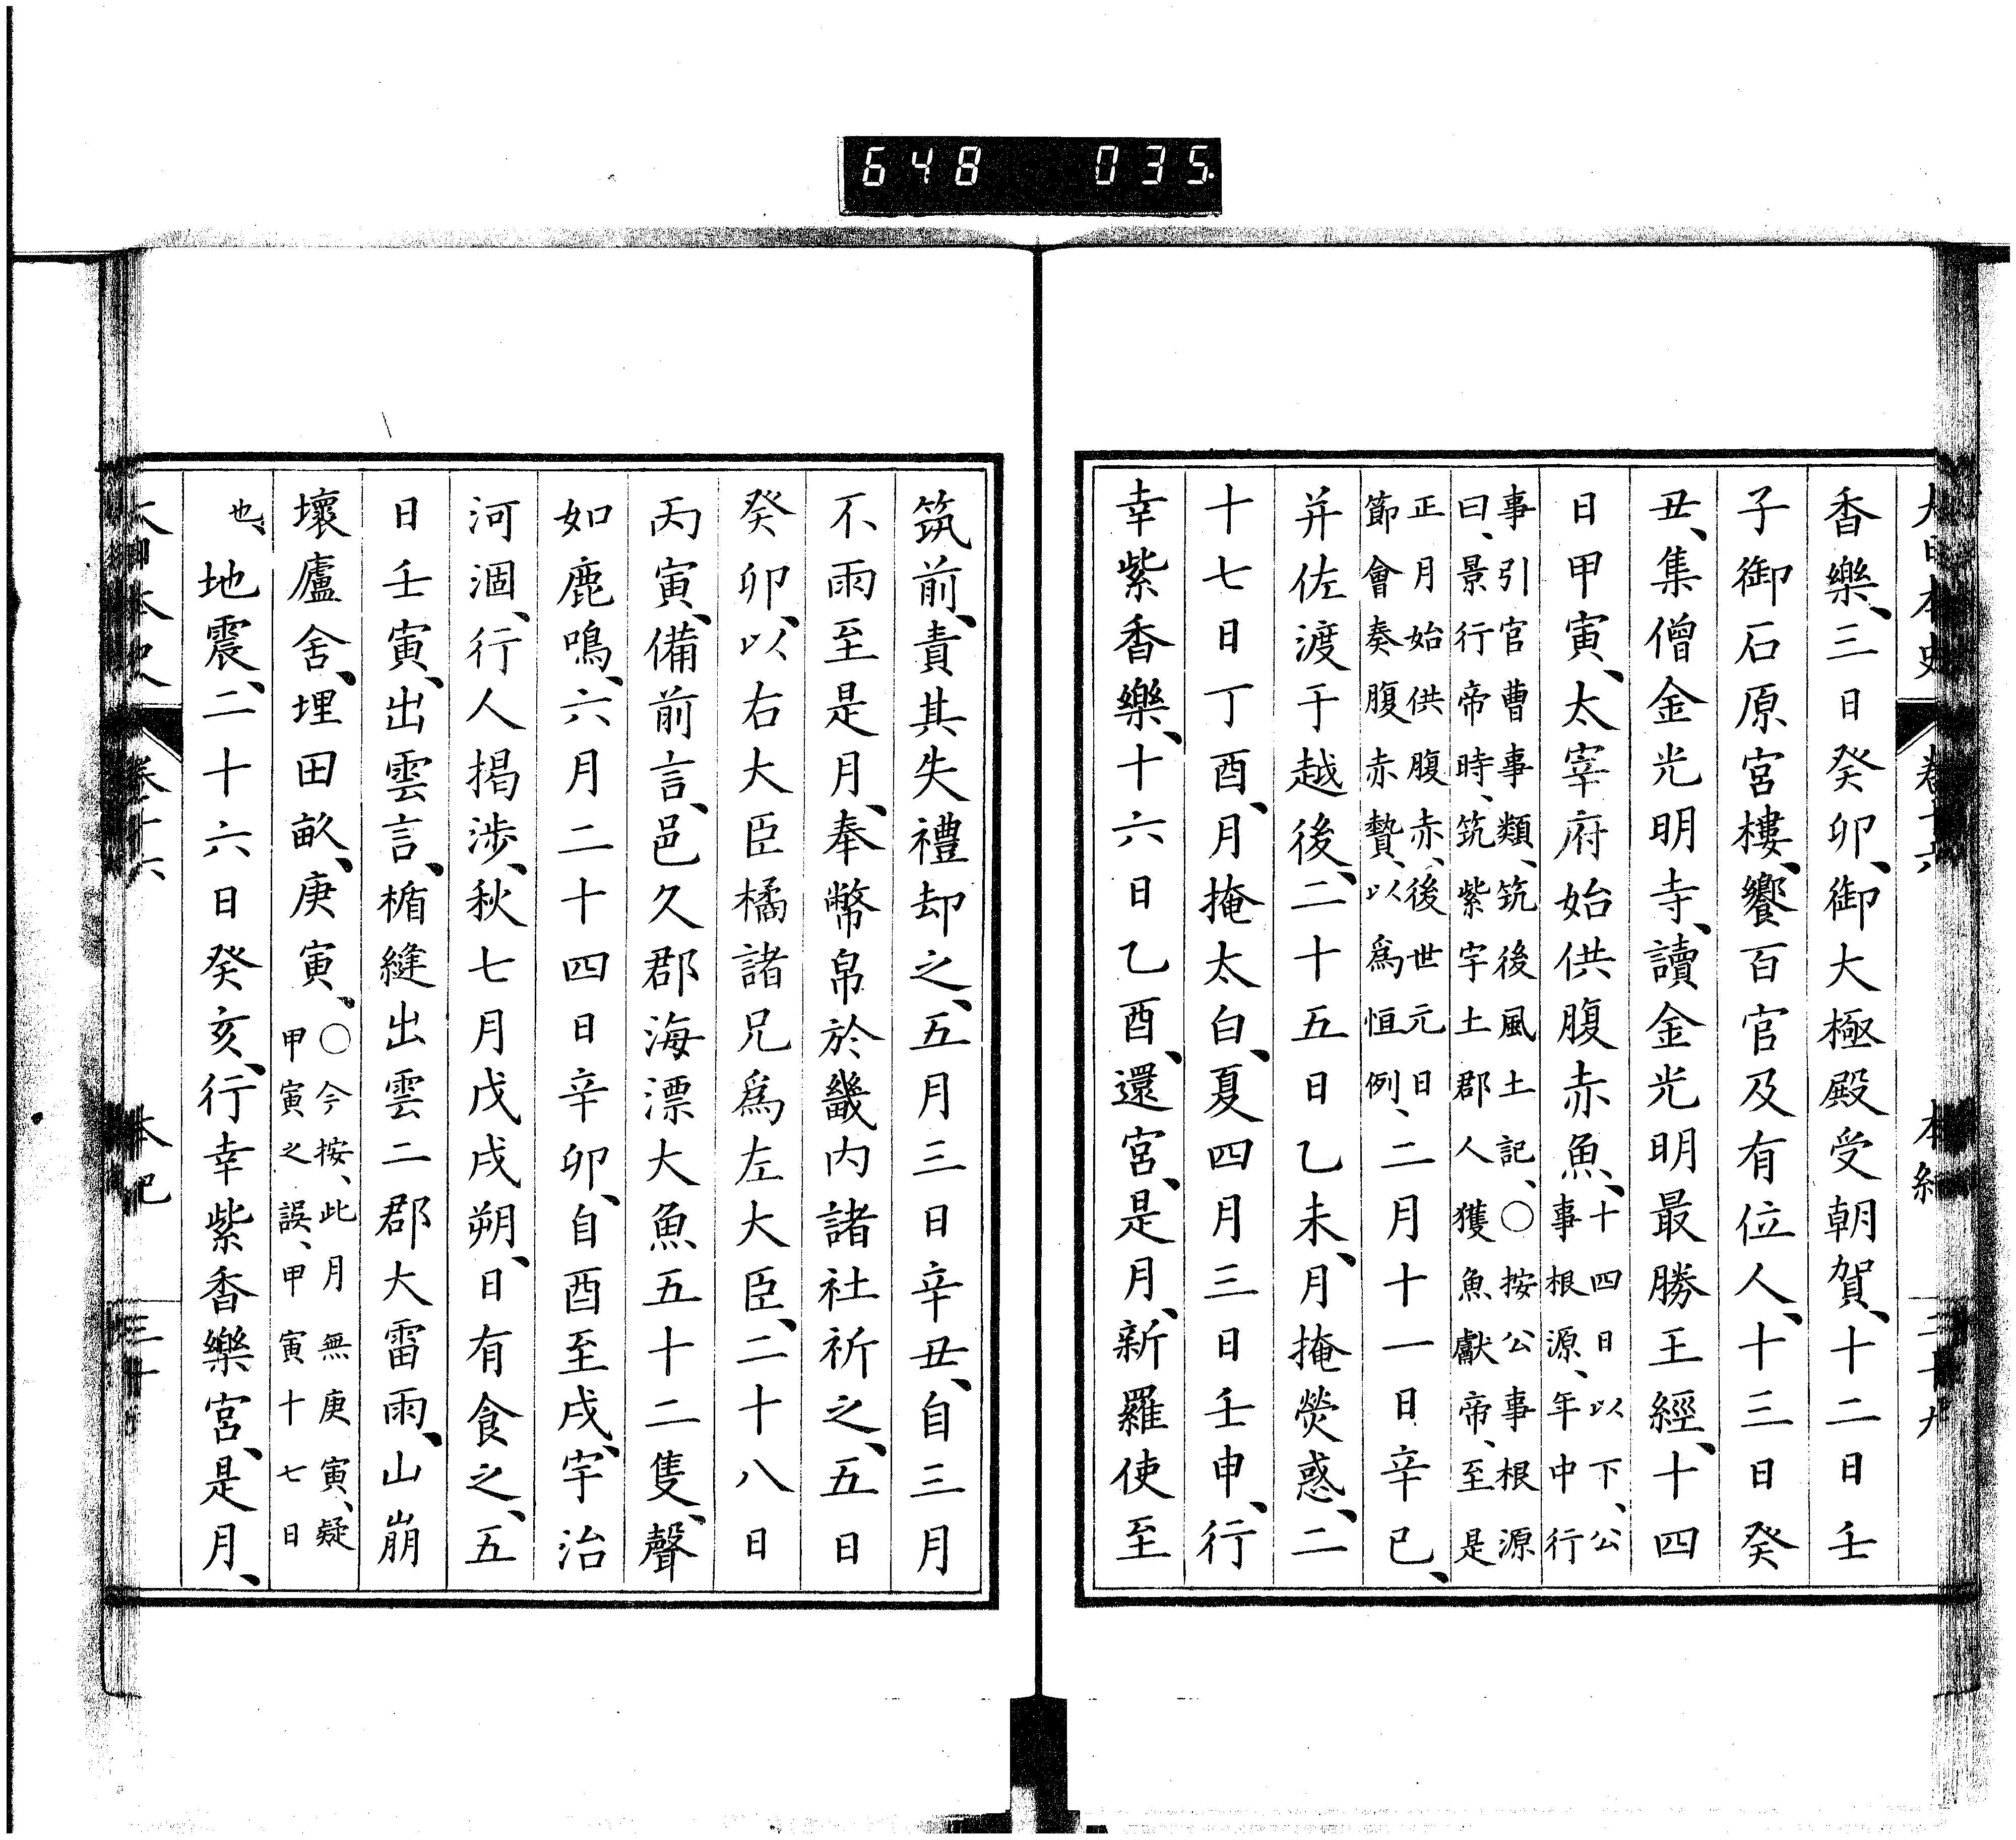 648 035
大日本史 卷十六 本紀 二十九
香樂、三日癸卯、御大極殿受朝賀、十二日壬
子御石原宮樓、饗百官及有位人、十三日癸
丑、集僧金光明寺、讀金光明最勝王經、十四
日甲寅、太宰府始供腹赤魚、十四日以下、公
事根源、年中行
事引官曹事類、筑後風土記、〇按公事根源
曰、景行帝時、筑紫宇土郡人獲魚獻帝、至是
正月始供腹赤、後世元日
節會奏腹赤贄、以爲恒例、二月十一日辛巳、
并佐渡于越後、二十五日乙未、月掩熒惑、二
十七日丁酉、月掩太白、夏四月三日壬申、行
幸紫香樂、十六日乙酉、還宮、是月、新羅使至
筑前、責其失禮却之、五月三日辛丑、自三月
不雨至是月、奉幣帛於畿内諸社祈之、五日
癸卯、以右大臣橘諸兄爲左大臣、二十八日
丙寅、備前言、邑久郡海漂大魚五十二隻、聲
如鹿鳴、六月二十四日辛卯、自酉至戌、宇治
河涸、行人揭涉、秋七月戊戌朔、日有食之、五
日壬寅、出雲言、楯縫出雲二郡大雷雨、山崩
壞廬舍、埋田畝、庚寅、〇今按、此月無庚寅、疑
甲寅之誤、甲寅十七日
也、地震、二十六日癸亥、行幸紫香樂宮、是月、
大日本史 卷十六 本紀 三十